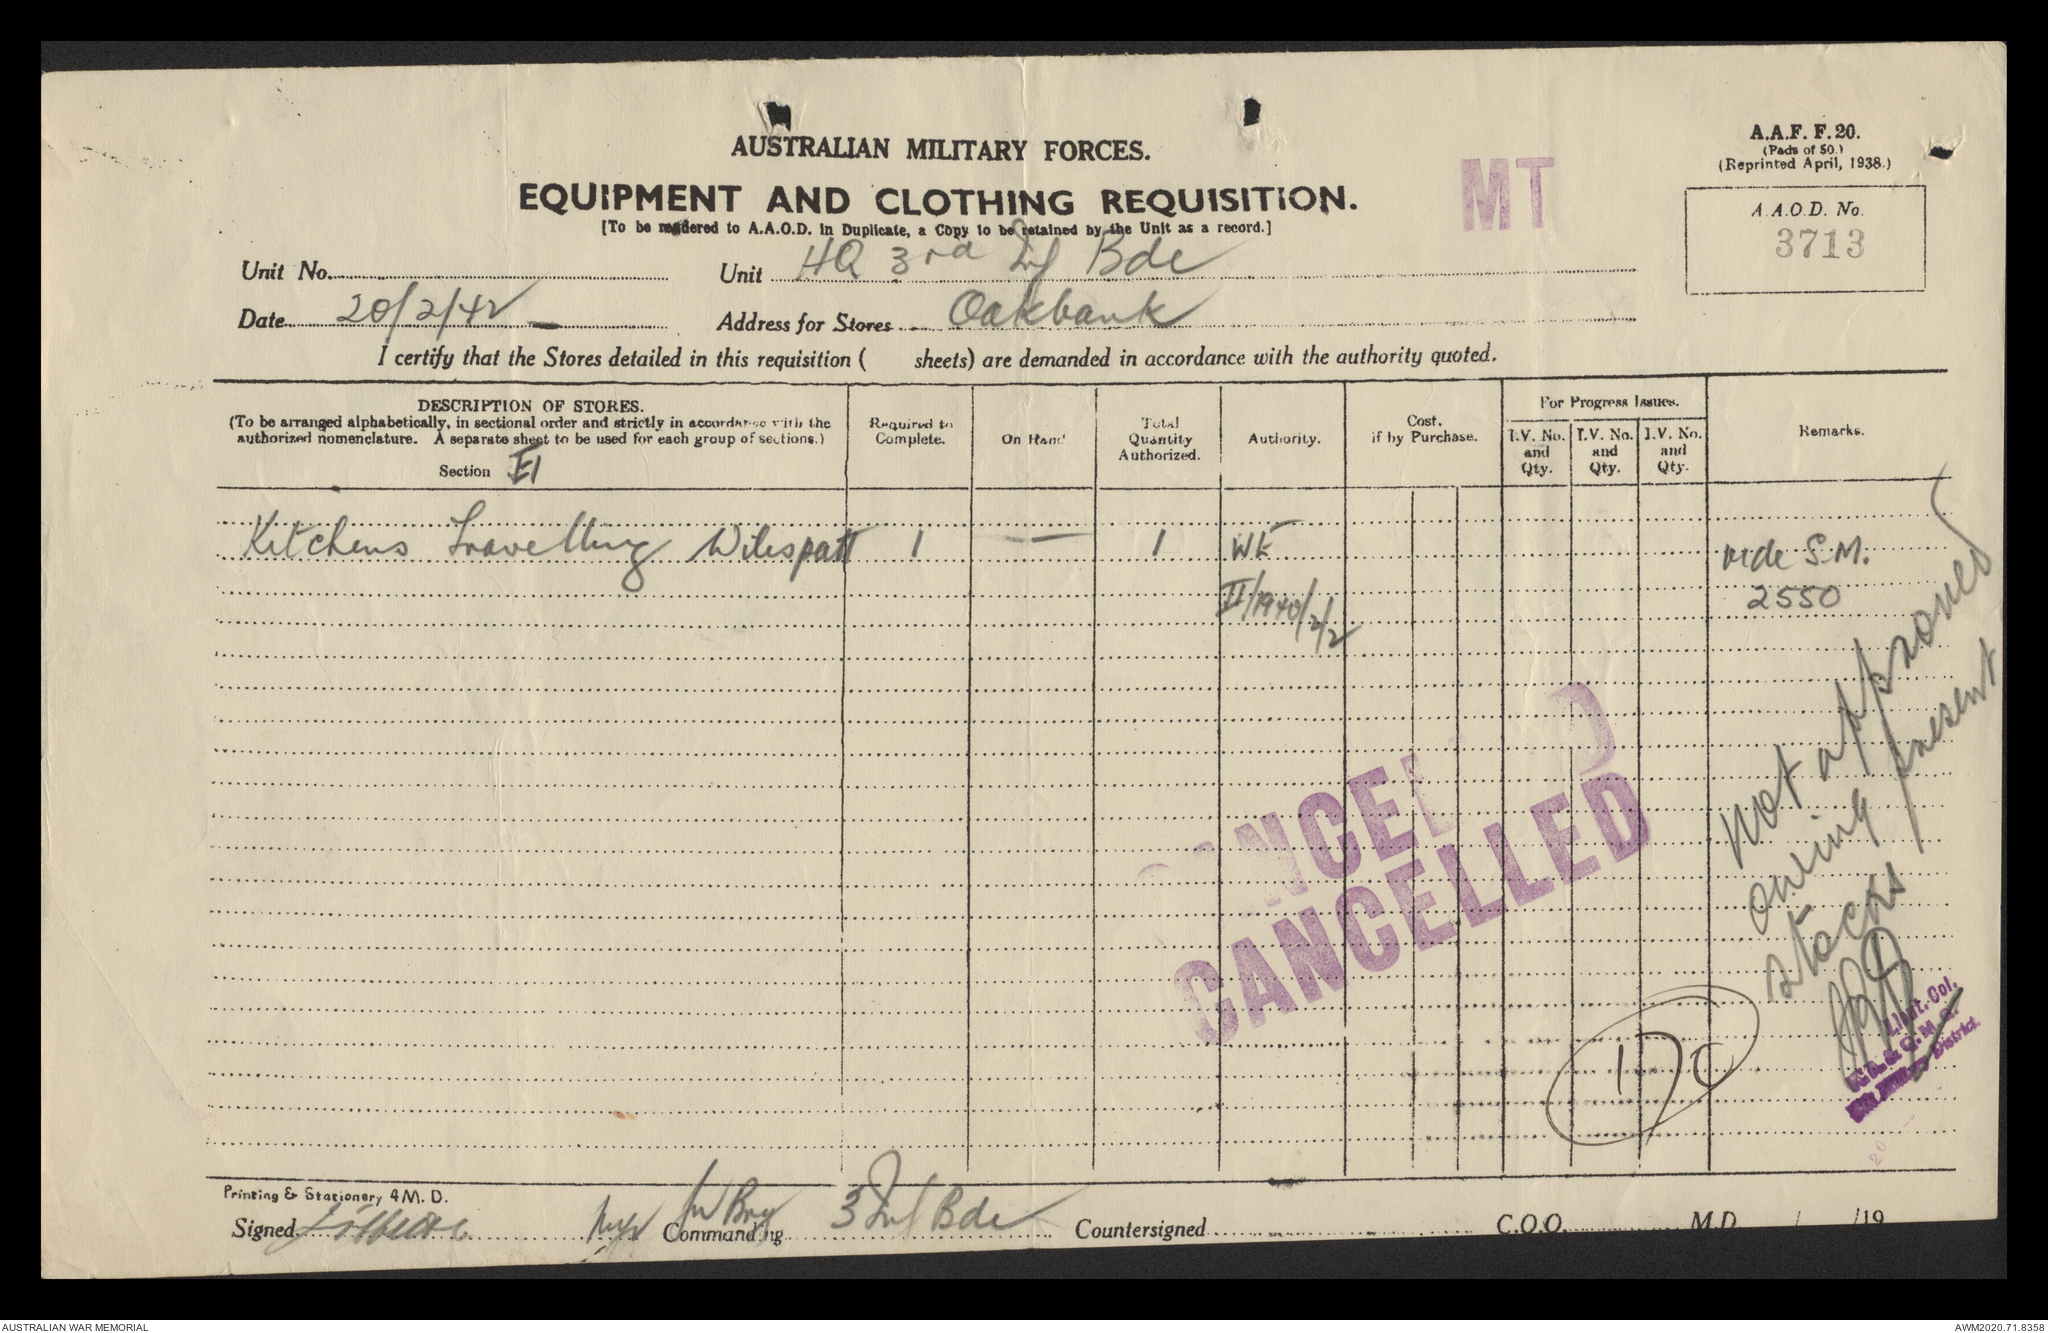 AUSTRALIAN MILITARY FORCES.
EQUIPMENT AND CLOTHING REQUISITION.
[To be rendered to A.A.O.D. in Duplicate, a Copy to be retained by the Unit as a record.]
MT
A.A.F. F. 20.
(Pads of 50.)
(Reprinted April, 1938.)
A.A.O.D. No.
3713
Unit No. Unit HQ 3rd Inf Bde
Date 20/2/42 Address for Stores Oakbank
I certify that the Stores detailed in this requisition ( sheets) are demanded in accordance with the authority quoted.
DESCRIPTION OF STORES.
(To be arranged alphabetically, in sectional order and strictly in accordance with the
authorized nomenclature. A separate sheet to be used for each group of sections.)
Section
Required to
Complete.
On Hand
Total
Quantity
Authorized.
Authority.
Cost,
if by Purchase.
For Progress Issues.
I.V. No.
and
Qty.
I.V. No.
and
Qty.
I.V. No.
and
Qty.
Remarks.
Kitchens Travelling Wiles patt 1 — 1 WE vide S.M.
II/1940/2/2 2550
Not approved
owing present
stocks
CANCELLED
CANCELLED
170
Lieut. Col.
District
20
Printing & Stationery 4 M. D.
Signed Commanding 3 Inf Bde Countersigned C.O.O. M.D. / /19
AUSTRALIAN WAR MEMORIAL
AWM2020.71.8358